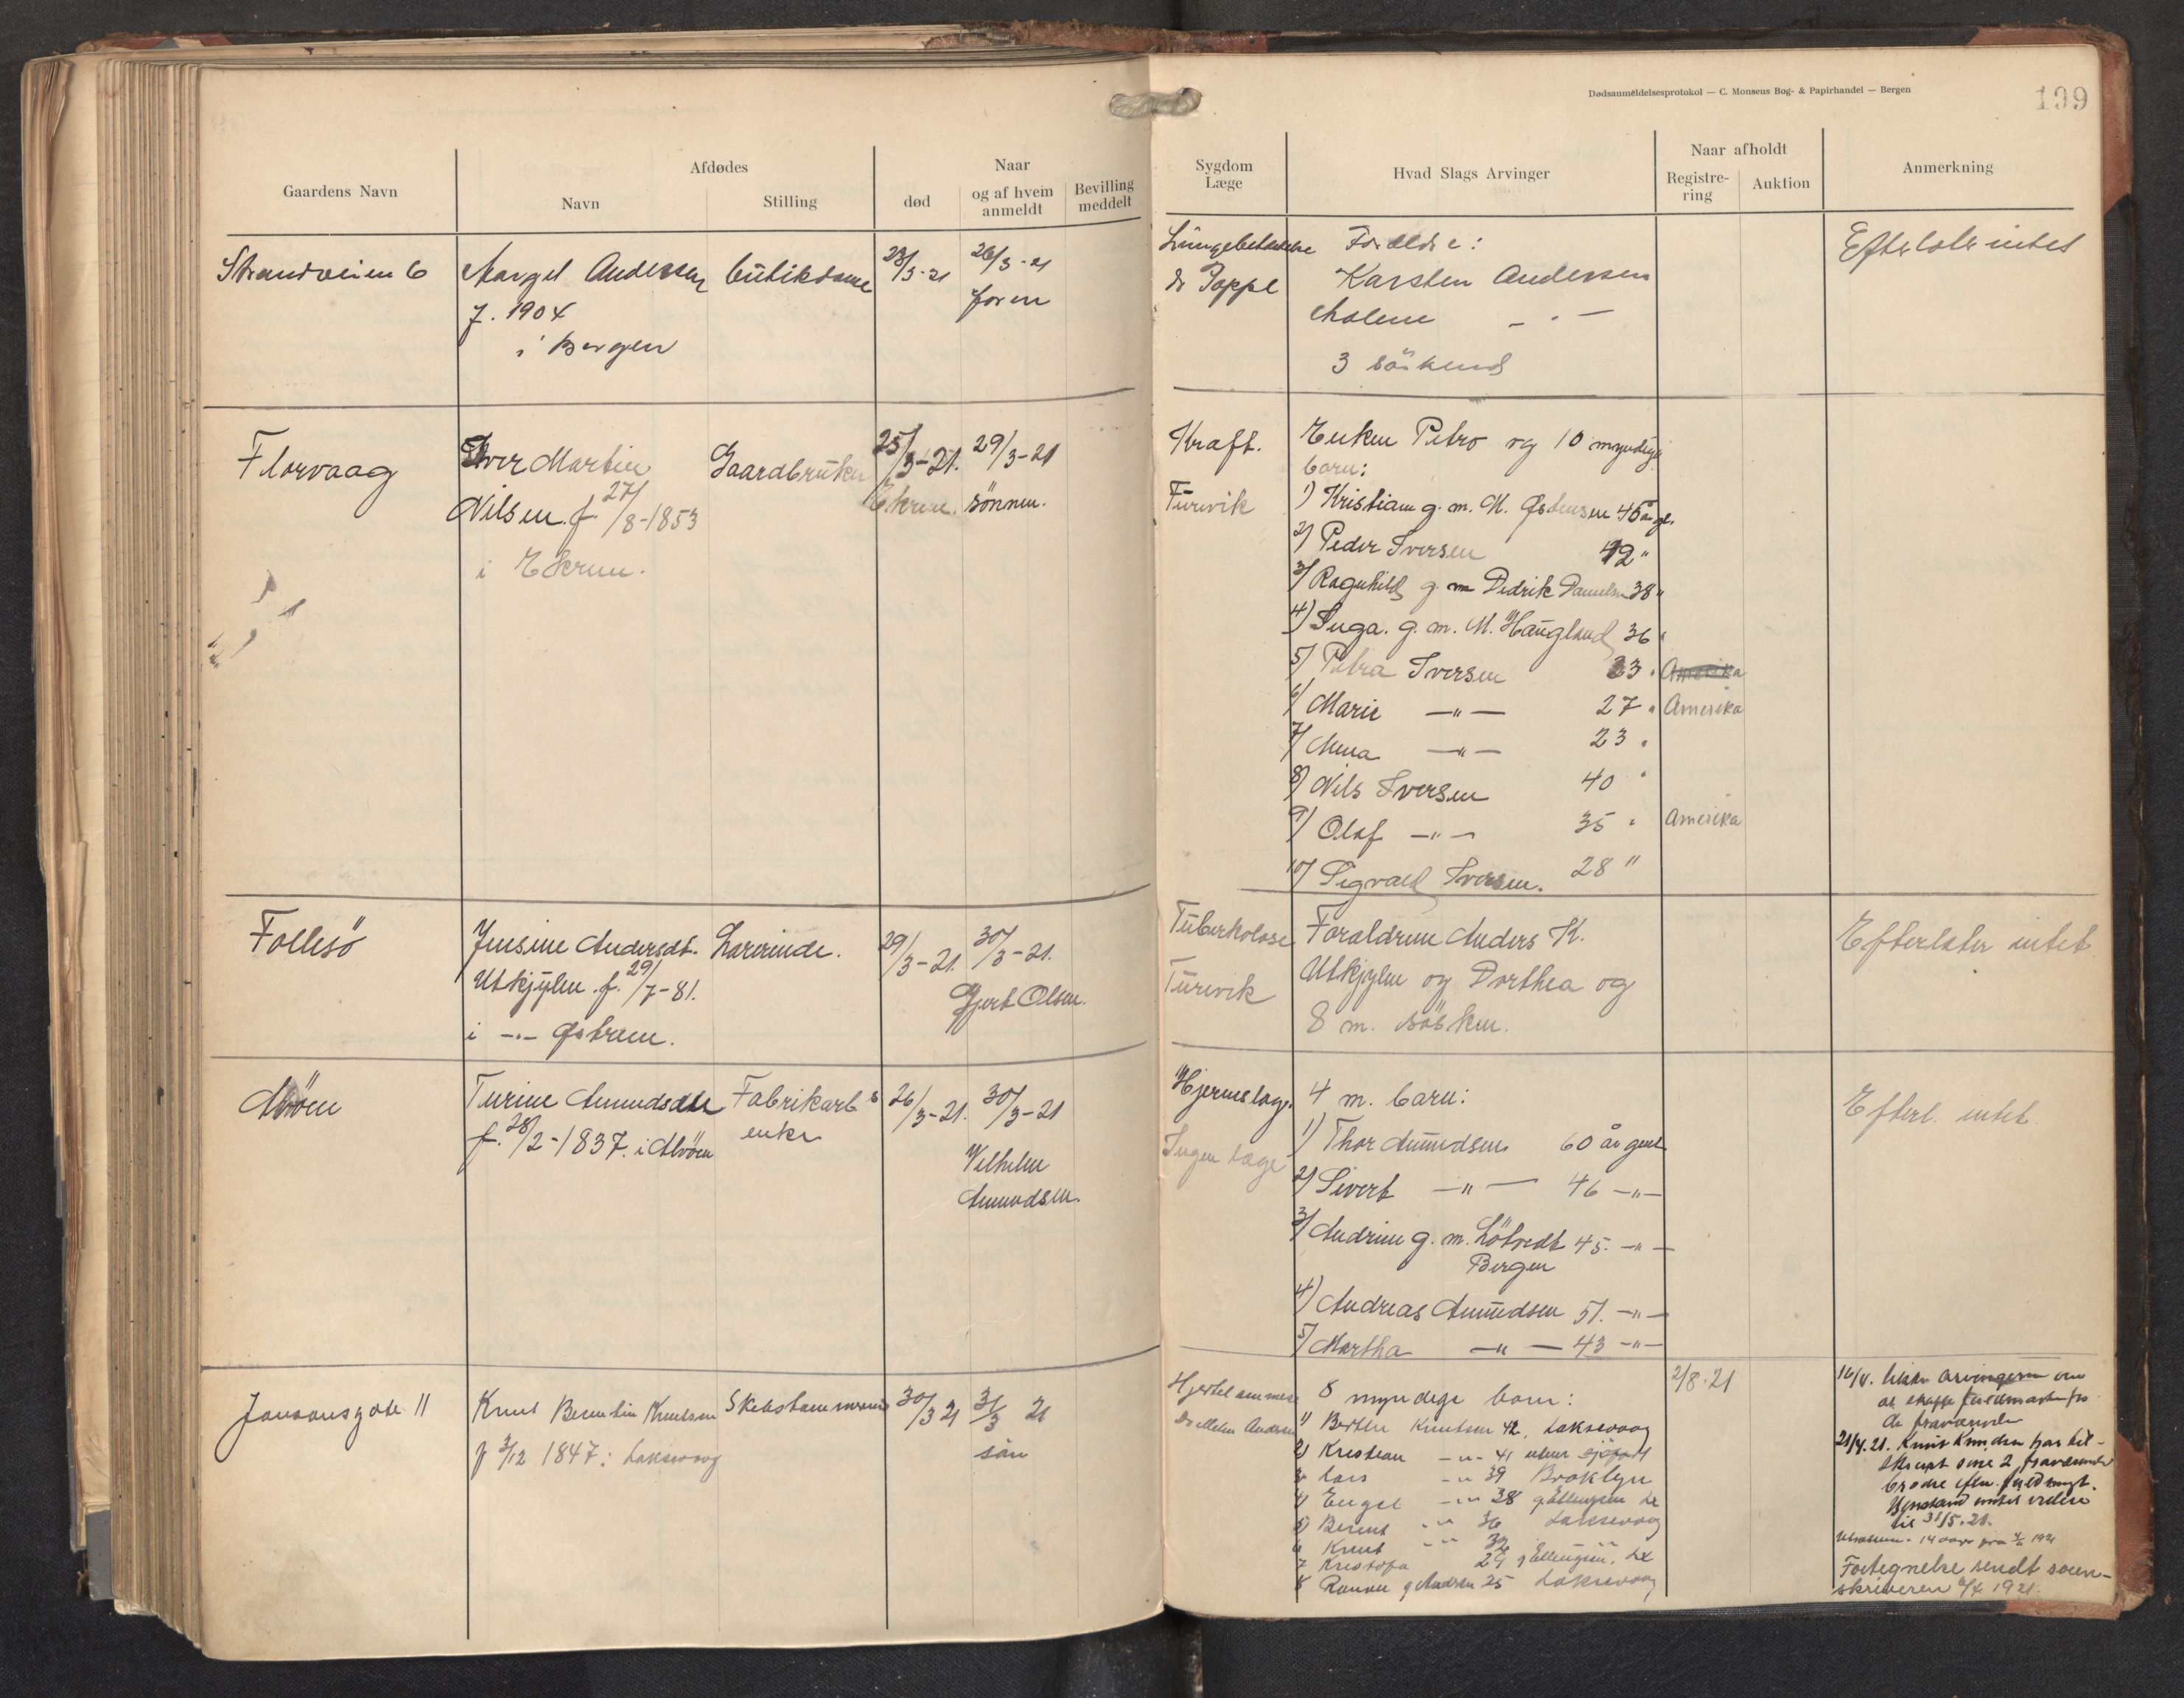 Dødsanmeldelsesprotokol — C. Monsens Bog- & Papirhandel — Bergen
199
Gaardens Navn
Afdødes
Navn
Stilling
Naar
død
og af hvem anmeldt
Bevilling meddelt
Sygdom
Læge
Hvad Slags Arvinger
Naar afholdt
Registre-
ring
Auktion
Anmerkning
Strandveien 6
Margit Andersen
f. 1904
i Bergen
butikdame
23/3-21
26/3-21
faren
Lungebetændelse
Dr Poppe
Forældre:
Karsten Andersen
Malene — " —
3 söskend
Efterlots intet
Florvaag
Iver Martin
Nilsen f. 27/8-1853
i Ekren.
Gaardbruker
25/3-21.
Ekren.
29/3-21
sönnen.
Kræft.
Turvik
Enken Petro og 10 myndige
barn:
1) Kristiane g. m. M. Østensen 45 år gl.
2) Peder Iversen 42 "
3) Ragnhild g. m Didrik Danielsen 38 "
4) Inga. g. m. M. Haugland 36 "
5) Petra Iversen 33 " Amerika
6) Marie — " — 27 " Amerika
7) Anna — " — 23 "
8) Nils Iversen 40 "
9) Olaf — " — 35 " Amerika
10) Sigvald Iversen. 28 "
Follesö
Jensine Andersdt.
Utkjylen. f. 29/7-81.
i — " — Østrem.
Lærerinde.
29/3-21.
30/3-21.
Gjert Olsen.
Tuberkolose
Turvik
Foraldrene Anders K.
Utkjylen og Dorthea og
8 m. sösken.
Efterlater intet
Alvöen
Turine Amundsdtr
f. 28/2-1837. i Alvöen
Fabrikarb s
enke
26/3-21.
30/3-21
Vilhelm
Amundsen.
Hjerneslag.
Ingen læge
4 m. barn:
1) Thor Amundsen 60 år gml
2) Sivert — " — 46 — " —
3) Andrine g. m. Lötvedt 45. — " —
Bergen
4) Andreas Amundsen 51. — " —
5) Martha — " — 43 — " —
Efterl. intet.
Jansonsgade 11
Knut Berntin Knutsen
f 3/12 1847 i Laksevaag
Skibstømmermand
30/3 21
31/3 21
sön
Hjertelammelse
8 myndige barn:
1) Berthe Knutsen 42, Laksevaag
2) Kristian — " — 41 uten sjöfart
3 Lars — " 39 Broklyn
4) Engel — " — 38 g. Ellingsen Lx
5) Bernt " " 36 Laksevaag
6 Knut — " " 32 " "
7 Kristofa 29 g Ellingsen. Lx
8 Ranou g Andrsen 25 Laksevaag
2/8.21
til 31/5.21.
Fortegnelse sendt soren-
skriveren 4/4 1921.